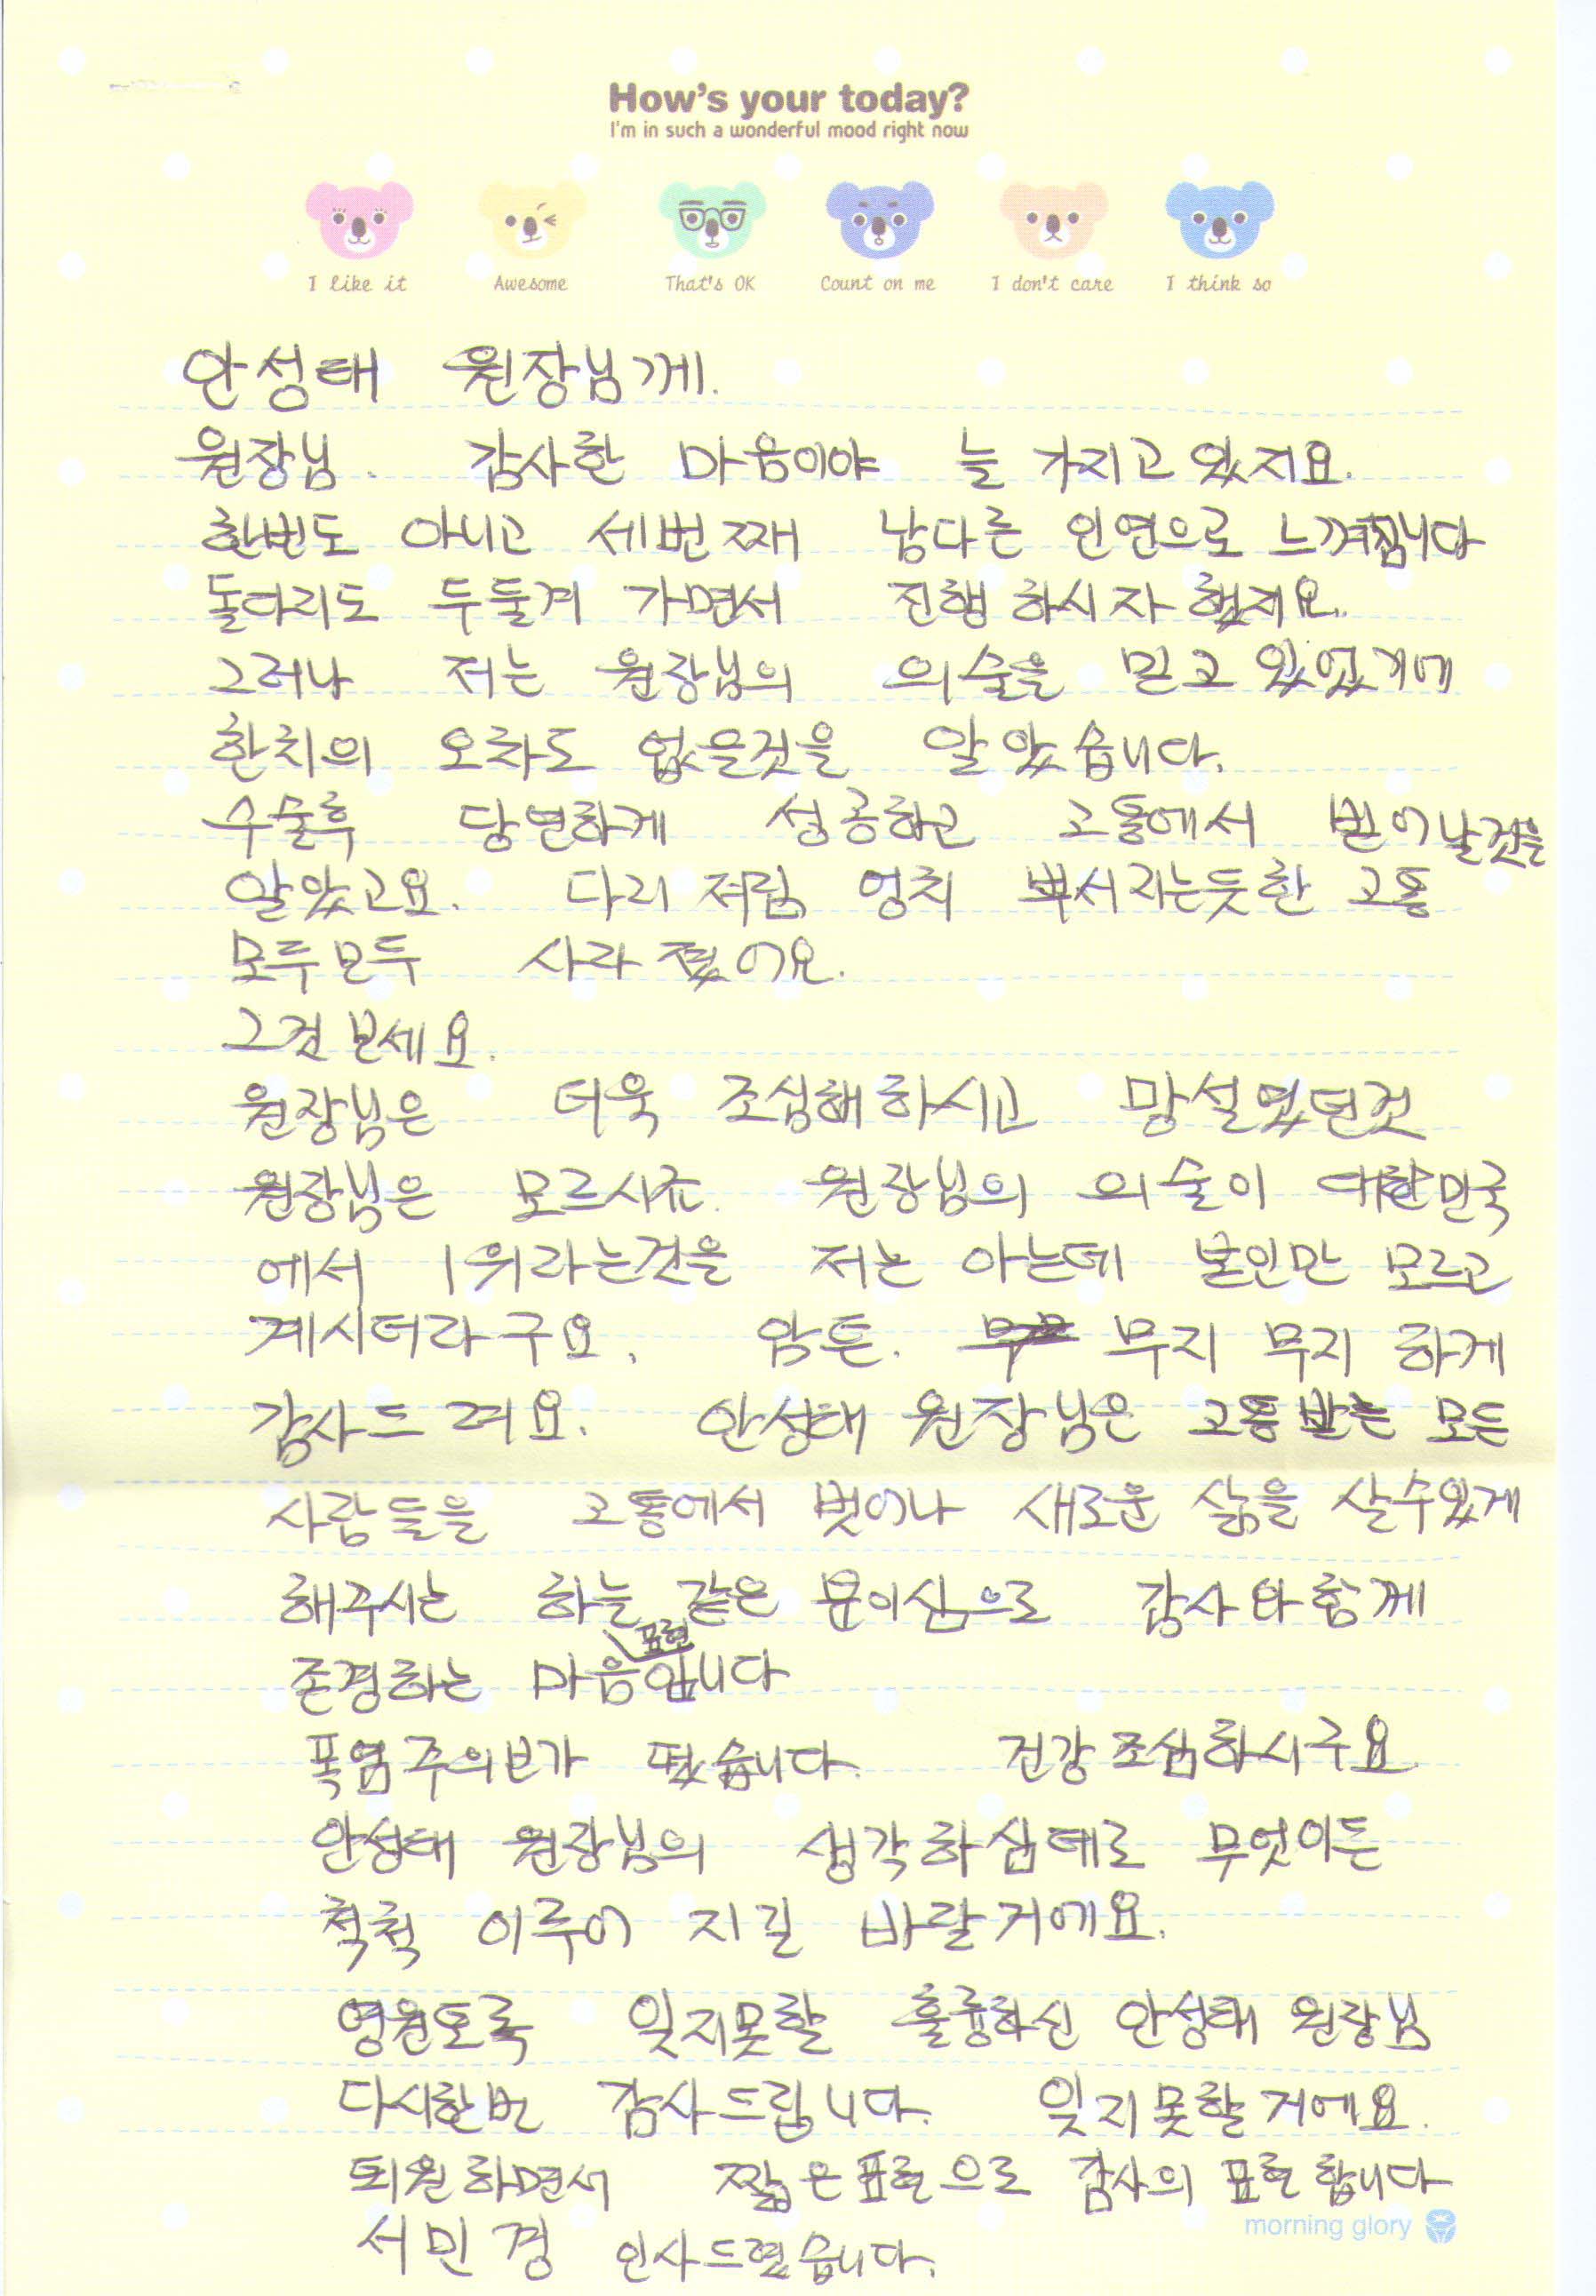 How's your today?
I'm in such a wonderful mood right now
I like it Awesome That's OK Count on me I don't care I think so
안성태 원장님께.
원장님. 감사한 마음이야 늘 가지고 있지요.
한번도 아니고 세번째 남다른 인연으로 느껴집니다
돌다리도 두둘겨 가면서 진행 하시자 했지요.
그러나 저는 원장님의 의술을 믿고 있었기에
한치의 오차도 없을것을 알았습니다.
수술후 당연하게 성공하고 고통에서 벋어날것을
알았고요. 다리 저림 엉치 뿌서지는듯한 고통
모두모두 사라 졌어요.
그것 보세요.
원장님은 더욱 조심해 하시고 망설였던것
원장님은 모르시죠. 원장님의 의술이 대한민국
에서 1위라는것을 저는 아는데 본인만 모르고
계시더라구요. 암튼. 무지 무지 하게
감사드려요. 안성태 원장님은 고통받는 모든
사람들을 고통에서 벗어나 새로운 삶을 살수있게
해주시는 하늘 같은 분이심으로 감사와 함께
표현
존경하는 마음입니다
폭염주의보가 떴습니다. 건강조심하시구요
안성태 원장님의 생각하심데로 무엇이든
척척 이루어 지길 바랄거에요.
영원토록 잊지못할 훌륭하신 안성태 원장님
다시한번 감사드립니다. 잊지못할거에요.
퇴원하면서 짧은표현으로 감사의 표현합니다
morning glory
서민경 인사드렸습니다.